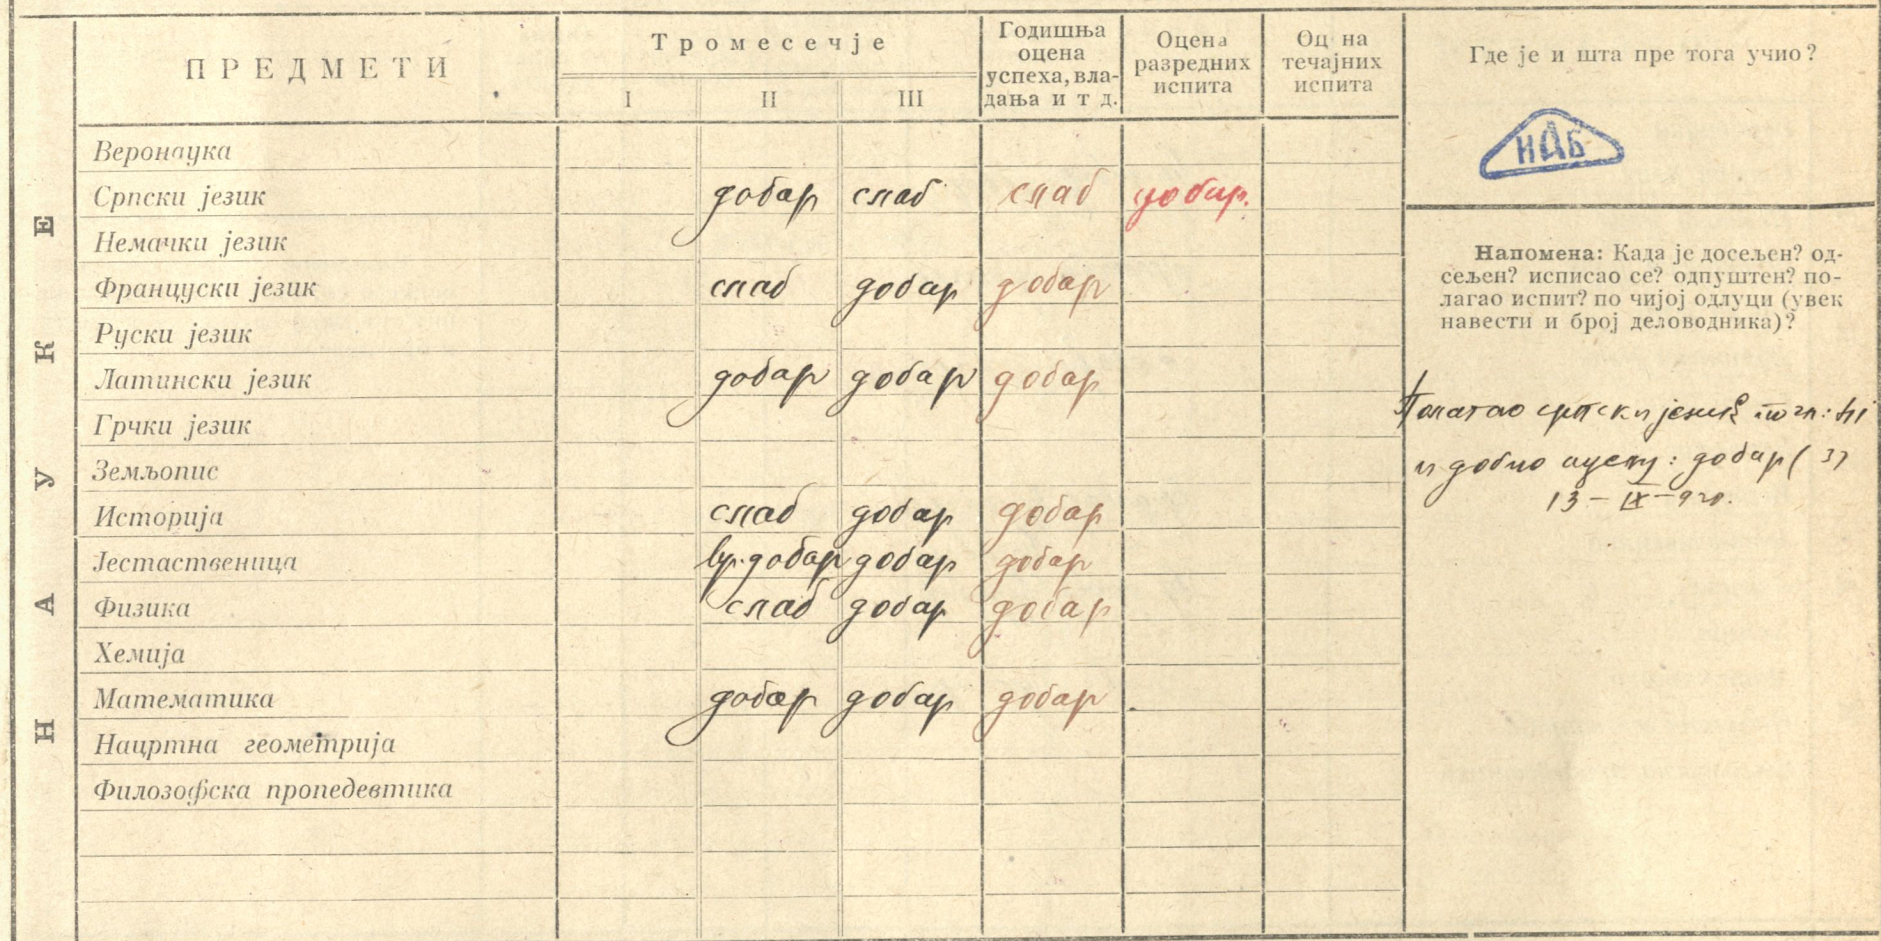 ПРЕДМЕТИ
Тромесечје
I II III
Годишња
оцена
успеха, вла-
дања и т д.
Оцена
разредних
испита
Оц на
течајних
испита
Где је и шта пре тога учио?
ИАБ
НАУКЕ
Веронаука
Српски језик добар слаб слаб добар.
Немачки језик
Француски језик слаб добар добар
Руски језик
Латински језик добар добар добар
Грчки језик
Земљопис
Историја слаб добар добар
Јестаственица вр. добар добар добар
Физика слаб добар добар
Хемија
Математика добар добар добар
Нацртна геометрија
Филозофска пропедевтика
Напомена: Када је досељен? од-
сељен? исписао се? одпуштен? по-
лагао испит? по чијој одлуци (увек
навести и број деловодника)?
Полагао српски језик по чл:
и добио оцену: добар (3)
13-IX-920.